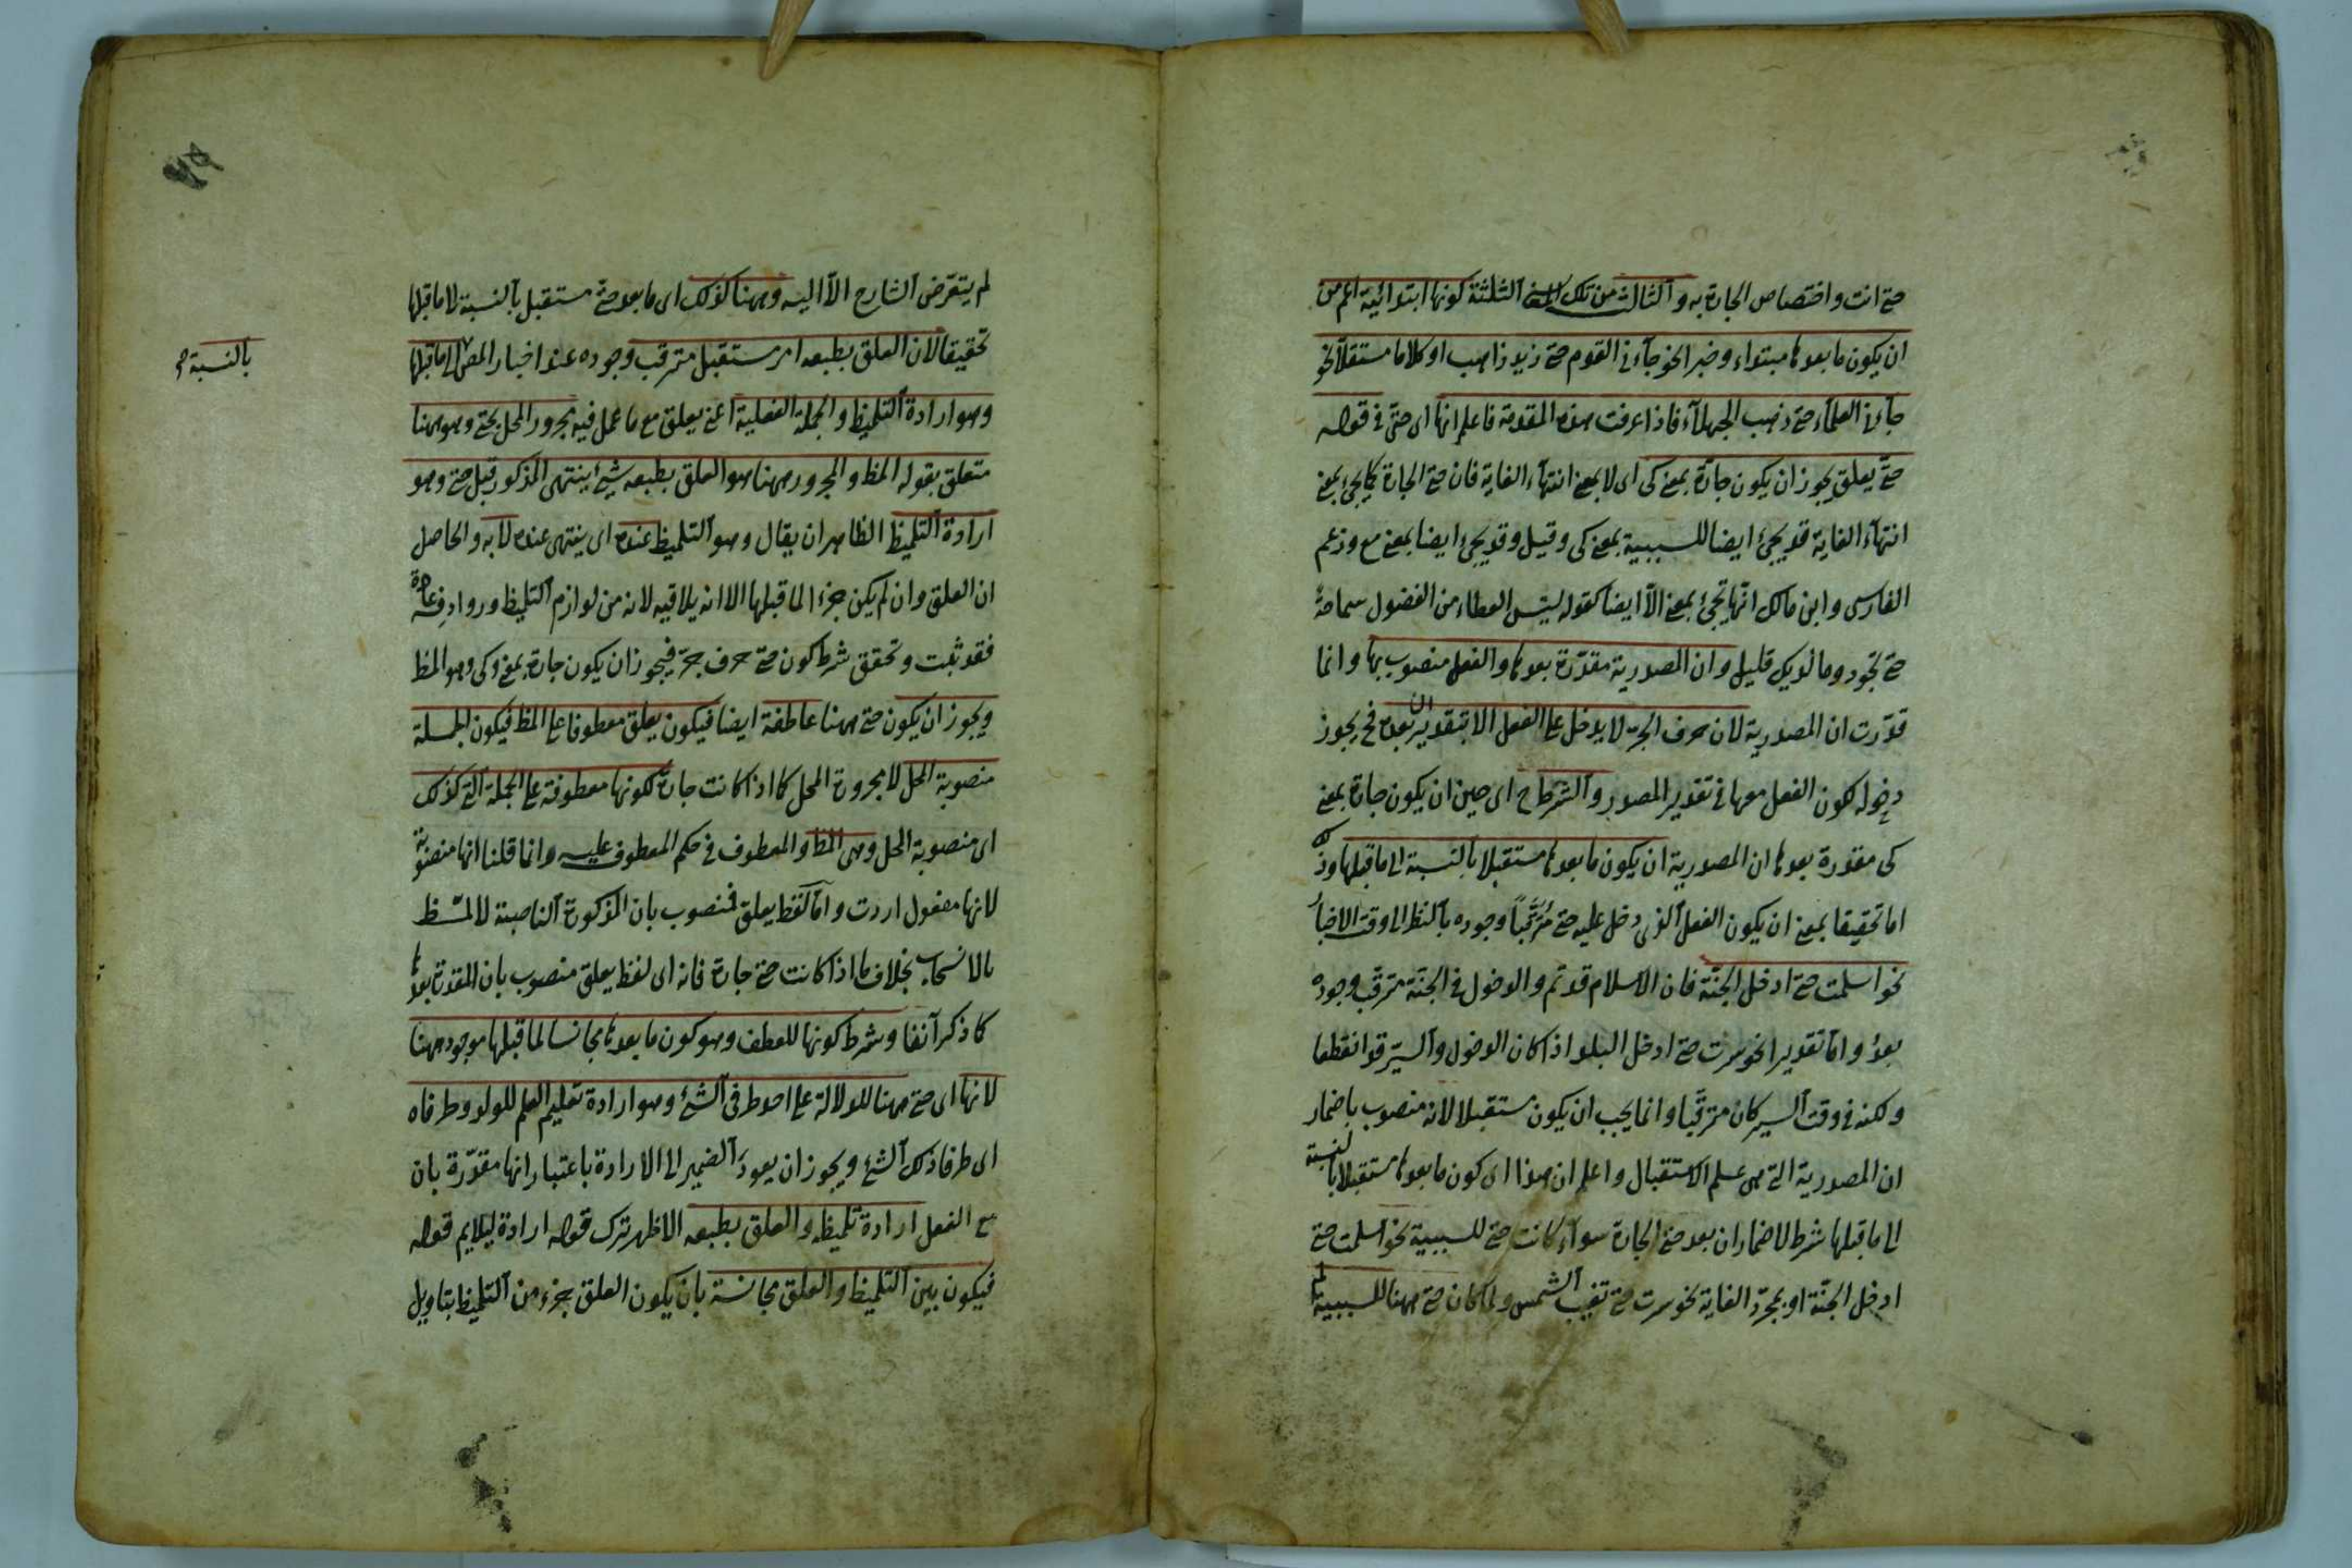 حتى انت واختصاص الجارة به والثالث من تلك الثلثة كونها ابتدائية اعم من
ان يكون ما بعدها مبتداء وخبرا نحو جاءنى القوم حتى زيد ذاهب او كلاما مستقلا نحو
جاءنى العلماء حتى ذهب الجهلاء فاذا عرفت هذه المقدمة فاعلم انها اى حتى فى قوله
حتى يعلق يجوز ان يكون جارة بمعنى كى اى لا بمعنى انتهاء الغاية فان حتى الجارة كما يجئ بمعنى
انتهاء الغاية قد يجئ ايضا للسببية بمعنى كى وقيل وقد يجئ ايضا بمعنى مع وزعم
الفارسى وابن مالك انها تجئ بمعنى الا ايضا كقوله ليس العطاء من الفضول سماحة
حتى تجود وما لديك قليل وان المصدرية مقدرة بعدها والفعل منصوب بها وانما
قدرت ان المصدرية لان حرف الجر لا يدخل على الفعل الا بتقدير ان بعده فح يجوز
دخوله لكون الفعل معها فى تقدير المصدر والشرط ح اى حين ان يكون جارة بمعنى
كى مقدرة بعدها ان المصدرية ان يكون ما بعدها مستقبلا بالنسبة الى ما قبلها وذلك
اما تحقيقا بمعنى ان يكون الفعل الذى دخل عليه حتى مترقبا وجوده بالنظر الى وقت الاخبار
نحو اسلمت حتى ادخل الجنة فان الاسلام قد تم والدخول فى الجنة مترقب وجوده
بعد واما تقديرا نحو سرت حتى ادخل البلد اذا كان الدخول والسير قد انقطعا
ولكنه فى وقت السير كان مترقبا وانما يجب ان يكون مستقبلا لانه منصوب باضمار
ان المصدرية التى هى علم الاستقبال واعلم ان هذا اى كون ما بعدها مستقبلا بالنسبة
الى ما قبلها شرط لاضمار ان بعد حتى الجارة سواء كانت حتى للسببية نحو اسلمت حتى
ادخل الجنة او بمجرد الغاية نحو سرت حتى تغيب الشمس ولما كان حتى ههنا للسببية
لم يتعرض الشارح الا اليه وههنا كذلك اى ما بعد حتى مستقبل بالنسبة لا ما قبلها
تحقيقا لان العلق بطبعه امر مستقبل مترقب وجوده عند اخبار المص الى ما قبلها
بالنسبة صح
وهو ارادة التلميظ والجملة الفعلية اعنى يعلق مع ما عمل فيه مجرور المحل بحتى وهو ههنا
متعلق بقوله المظ والمجرور ههنا هو العلق بطبعه شئ ينتهى المذكور قبل حتى وهو
ارادة التلميظ الظاهر ان يقال وهو التلميظ عنده اى ينتهى عنده لا به والحاصل
ان العلق وان لم يكن جزء الما قبلها الا انه يلاقيه لانه من لوازم التلميظ وروادفه
فقد ثبت وتحقق شرط كون حتى حرف جر فيجوز ان يكون جارة بمعنى كى وهو المظ
ويجوز ان يكون حتى ههنا عاطفة ايضا فيكون يعلق معطوفا على المظ فيكون الجملة
منصوبة المحل لا مجرورة المحل كما اذا كانت جارة لكونها معطوفة على الجملة التى كذلك
اى منصوبة المحل وهى المظ والمعطوف فى حكم المعطوف عليه وانما قلنا انها منصوبة
لانها مفعول اردت واما لفظ يعلق فمنصوب بان المذكورة الناصبة لالمظ
بالانسحاب بخلاف ما اذا كانت حتى جارة فانه اى لفظ يعلق منصوب بان المقدرة بعدها
كما ذكر آنفا وشرط كونها للعطف وهو كون ما بعدها مجانسا لما قبلها موجود ههنا
لانها اى حتى ههنا للدلالة على احد طرفى الشئ وهو ارادة تعليم العلم للولد وطرفاه
اى طرفا ذلك الشئ ويجوز ان يعود الضمير الى الارادة باعتبار انها مقدرة بان
مع الفعل ارادة تلميظه والعلق بطبعه الاظهر ترك قوله ارادة ليلايم قوله
فيكون بين التلميظ والعلق مجانسة بان يكون العلق جزء من التلميظ بتاويل